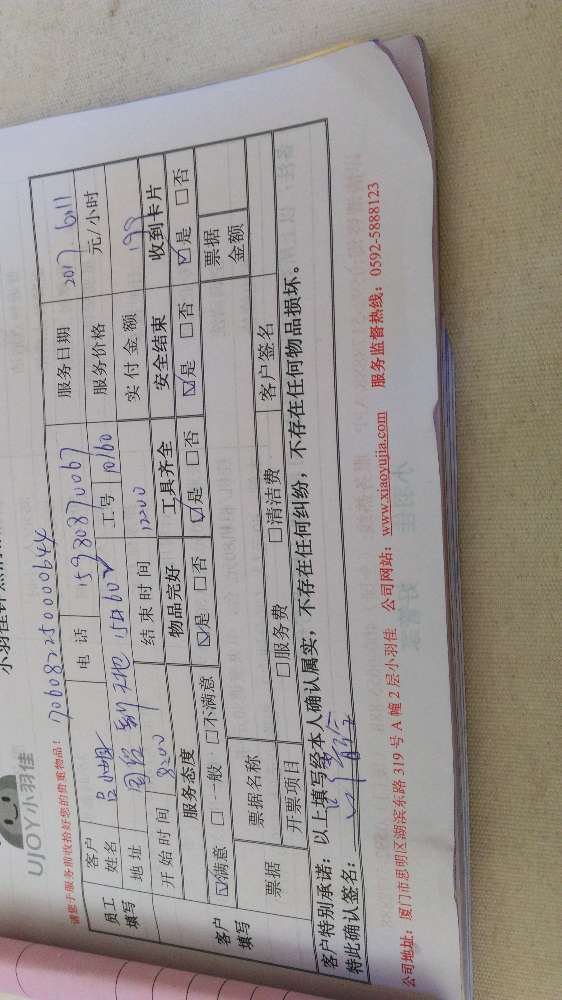 UJOY小羽佳
请您于服务前收拾好您的贵重物品！
706082250000644
员工填写 客户姓名 电话 15980870067 服务日期 2017.6.11
地址 工号 10160 服务价格 元/小时
开始时间 8:00 结束时间 12:00 实付金额 199
客户填写 服务态度 物品完好 工具齐全 安全结束 收到卡片
☑满意 □一般 □不满意 ☑是 □否 ☑是 □否 ☑是 □否 ☑是 □否
票据 票据名称 票据金额
开票项目 □服务费 □清洁费 客户签名
客户特别承诺：以上填写经本人确认属实，不存在任何纠纷，不存在任何物品损坏。
特此确认签名：
公司地址：厦门市思明区湖滨东路 319 号 A 幢 2 层小羽佳 公司网站：www.xiaoyujia.com 服务监督热线：0592-5888123